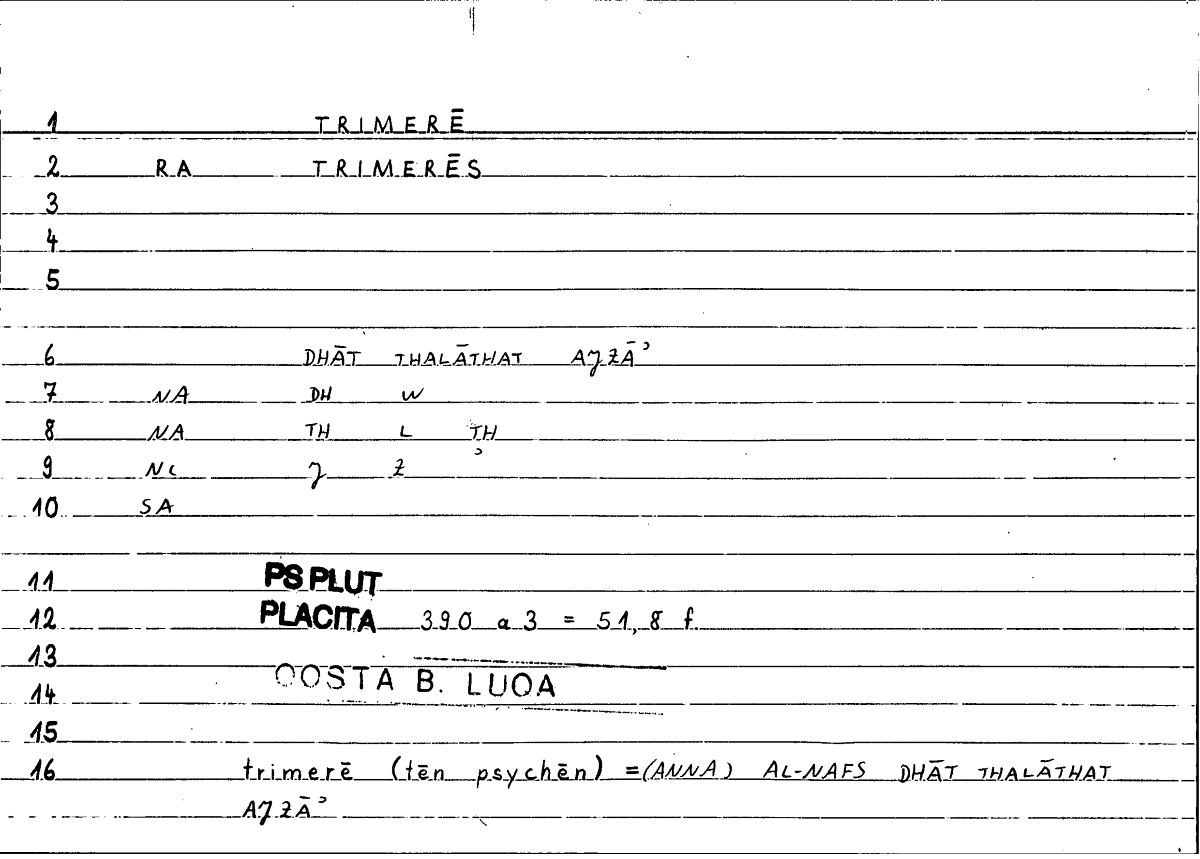 1 TRIMERĒ
2 RA TRIMERĒS
3
4
5
6 DHĀT THALĀTHAT AJZĀʾ
7 NA DH W
8 NA TH L TH
9 NC J Z ʾ
10 SA
11 PS PLUT
12 PLACITA 390 a 3 = 51,8 f.
13
14 COSTA B. LUOA
15
16 trimerē (tēn psychēn) = (ANNA) AL-NAFS DHĀT THALĀTHAT
AJZĀʾ